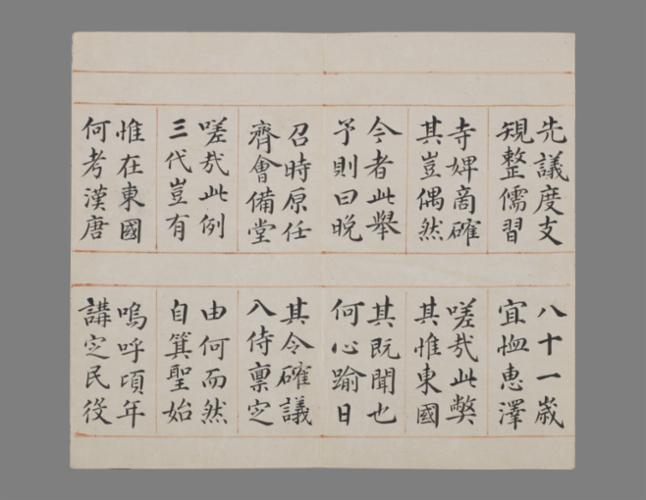 先議度支
規整儒習
八十一歲
宜恤惠澤
寺婢商確
其豈偶然
嗟哉此弊
其惟東國
今者此擧
予則曰晩
其既聞也
何心踰日
召時原任
齊會備堂
其令確議
入侍禀定
嗟哉此例
三代豈有
由何而然
自箕聖始
惟在東國
何考漢唐
嗚呼頃年
講定民役